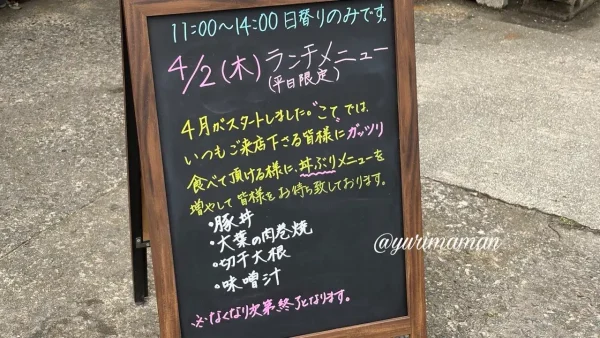 11:00〜14:00 日替りのみです。
4/2(木)ランチメニュー
(平日限定)
4月がスタートしました。"こて"では、
いつもご来店下さる皆様にガッツリ
食べて頂ける様に、丼ぶりメニューを
増やして皆様をお待ち致しております。
・豚丼
・大葉の肉巻焼
・切干大根
・味噌汁
※なくなり次第終了となります。
@yurimaman